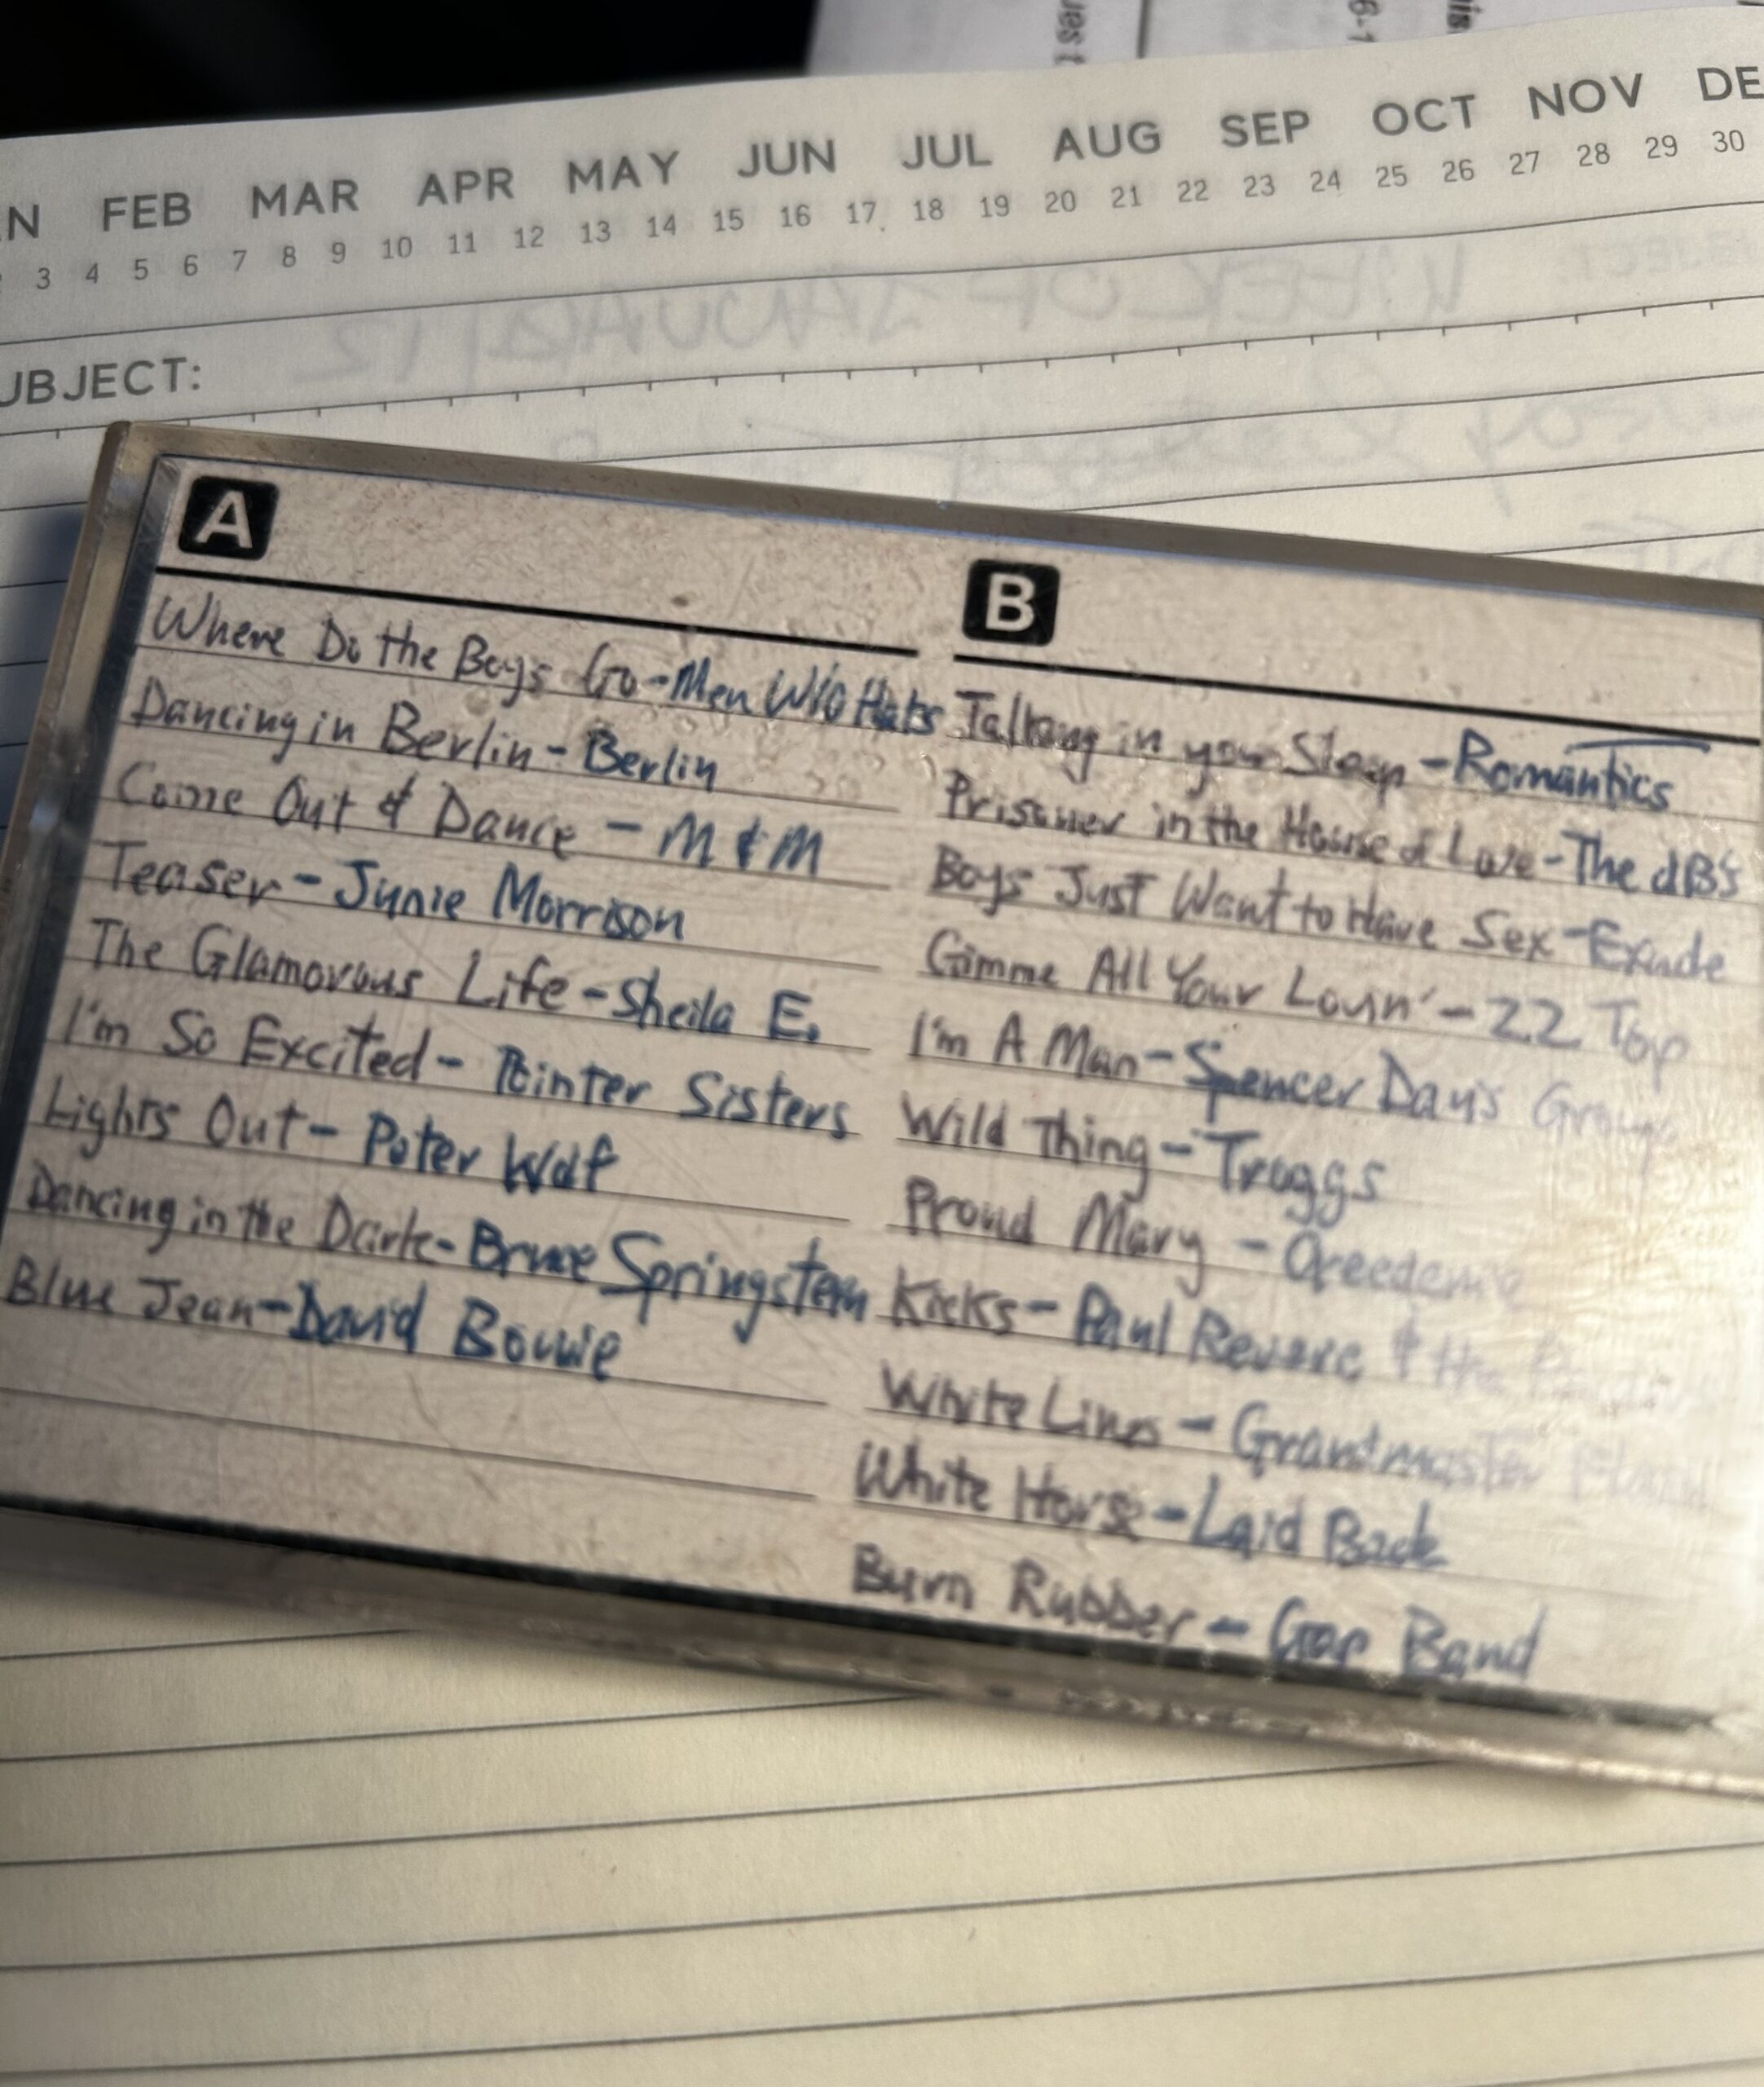 ues t
6-1
is
N FEB MAR APR MAY JUN JUL AUG SEP OCT NOV DE
3 4 5 6 7 8 9 10 11 12 13 14 15 16 17 18 19 20 21 22 23 24 25 26 27 28 29 30
UBJECT:
WEEK OF JANUARY 12
A
Where Do the Boys Go - Men W/O Hats
Dancing in Berlin - Berlin
Come Out & Dance - M & M
Teaser - Junie Morrison
The Glamorous Life - Sheila E.
I'm So Excited - Pointer Sisters
Lights Out - Peter Wolf
Dancing in the Dark - Bruce Springsteen
Blue Jean - David Bowie
B
Talking in your Sleep - Romantics
Prisoner in the House of Love - The dB's
Boys Just Want to Have Sex - Exude
Gimme All Your Lovin' - ZZ Top
I'm A Man - Spencer Davis Group
Wild Thing - Troggs
Proud Mary - Creedence
Kicks - Paul Revere & the
White Lines - Grandmaster
White Horse - Laid Back
Burn Rubber - Gap Band